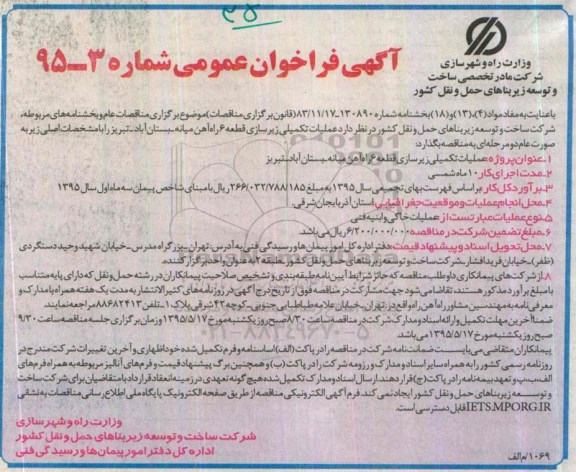 ۹۵
وزارت راه و شهرسازی
شرکت مادر تخصصی ساخت
و توسعه زیربناهای حمل و نقل کشور
آگهی فراخوان عمومی شماره ۳ــ۹۵
باعنایت به مفاد مواد (۴)، (۱۳) و (۱۸) بخشنامه شماره ۱۳۰۸۹۰-۸۳/۱۱/۱۷ (قانون برگزاری مناقصات) موضوع برگزاری مناقصات عام و بخشنامه های مربوطه،
شرکت ساخت و توسعه زیربناهای حمل و نقل کشور در نظر دارد عملیات تکمیلی زیرسازی قطعه ۶ راه آهن میانه_بستان آباد_تبریز را با مشخصات اصلی زیر به
صورت عام دو مرحله ای به مناقصه بگذارد:
۱. عنوان پروژه: عملیات تکمیلی زیرسازی قطعه ۶ راه آهن میانه_بستان آباد_تبریز
۲. مدت اجرای کار: ۱۰ ماه شمسی
۳. برآورد کل کار: بر اساس فهرست بهای تجمیعی سال ۱۳۹۵ به مبلغ ۲۶۶/۰۳۲/۷۸۸/۱۸۵ ریال با مبنای شاخص پیمان سه ماه اول سال ۱۳۹۵
۴. محل انجام عملیات و موقعیت جغرافیایی: استان آذربایجان شرقی
۵. نوع عملیات عبارتست از: عملیات خاکی و ابنیه فنی
۶. مبلغ تضمین شرکت در مناقصه: ۶/۲۰۰/۰۰۰/۰۰۰ ریال می باشد.
۷. محل تحویل اسناد و پیشنهاد قیمت: دفتر اداره کل امور پیمان ها و رسیدگی فنی به آدرس: تهران_بزرگراه مدرس_خیابان شهید وحید دستگردی
(ظفر)_خیابان فرید افشار_شرکت ساخت و توسعه زیربناهای حمل و نقل کشور_طبقه ۲ به عنوان واحد برگزارکننده.
۸. از شرکت های پیمانکاری داوطلب مناقصه که حائز شرایط آیین نامه طبقه بندی و تشخیص صلاحیت پیمانکاران در رشته حمل و نقل که دارای پایه متناسب
با مبلغ برآورد مذکور هستند، تقاضا می شود جهت مشارکت در مناقصه فوق از تاریخ درج آگهی در روزنامه های کثیرالانتشار به مدت یک هفته همراه با مدارک و
معرفی نامه به مهندسین مشاور راه آهن راه واقع در: تهران_خیابان علامه طباطبایی جنوبی_کوچه ۴۲ شرقی_پلاک ۱_تلفن ۸۸۶۸۲۴۱۳ مراجعه نمایند.
ضمناً آخرین مهلت تکمیل و ارائه اسناد و مدارک شرکت در مناقصه ساعت ۸/۳۰ صبح روز یکشنبه مورخ ۱۳۹۵/۵/۱۷ و زمان برگزاری جلسه مناقصه ساعت ۹/۳۰
صبح روز یکشنبه مورخ ۱۳۹۵/۵/۱۷ می باشد.
پیمانکاران متقاضی می بایست ضمانت نامه شرکت در مناقصه را در پاکت (الف) اساسنامه و فرم تکمیل شده خوداظهاری و آخرین تغییرات شرکت مندرج در
روزنامه رسمی کشور را به همراه سایر اسناد و مدارک و رزومه شرکت را در پاکت (ب) و همچنین برگ پیشنهاد قیمت و فرم های آنالیز مربوطه به همراه فرم های
الف_ب_پ و تعهد بیمه نامه را در پاکت (ج) قرار دهند. ارسال اسناد و مدارک تکمیل شده هیچ گونه تعهدی در زمینه انعقاد قرارداد با متقاضیان برای شرکت ساخت
و توسعه زیربناهای حمل و نقل کشور ایجاد نمی کند. فرم آگهی الکترونیکی مناقصه از طریق صفحه الکترونیک پایگاه ملی اطلاع رسانی مناقصات به نشانی
IETS.MPORG.IR قابل دسترسی است.
وزارت راه و شهرسازی
شرکت ساخت و توسعه زیربناهای حمل و نقل کشور
اداره کل دفتر امور پیمان ها و رسیدگی فنی
۱۰۶۹/م الف